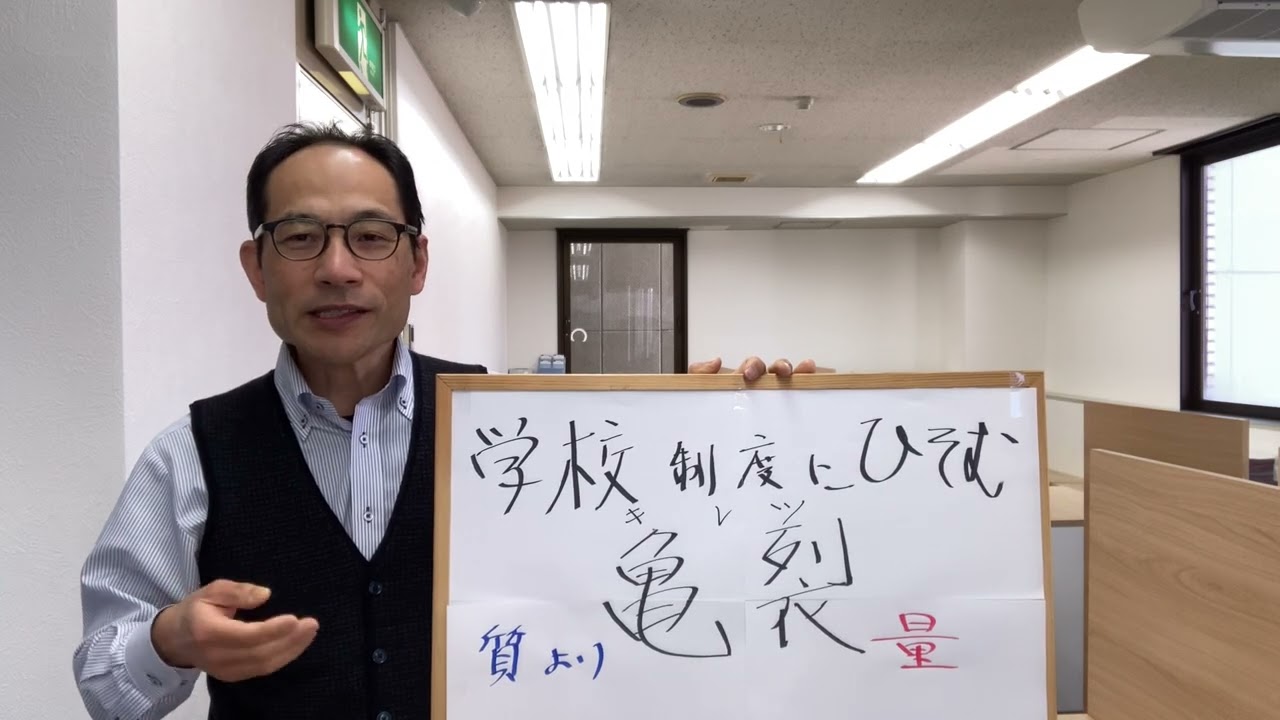 学校制度にひそむ
キレツ
亀裂
質より
量